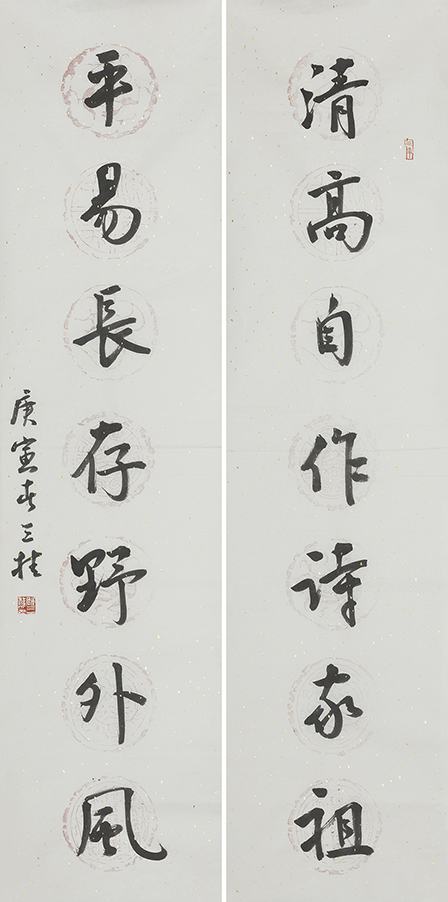 清高自作詩家祖
平易長存野外風
庚寅春三桂